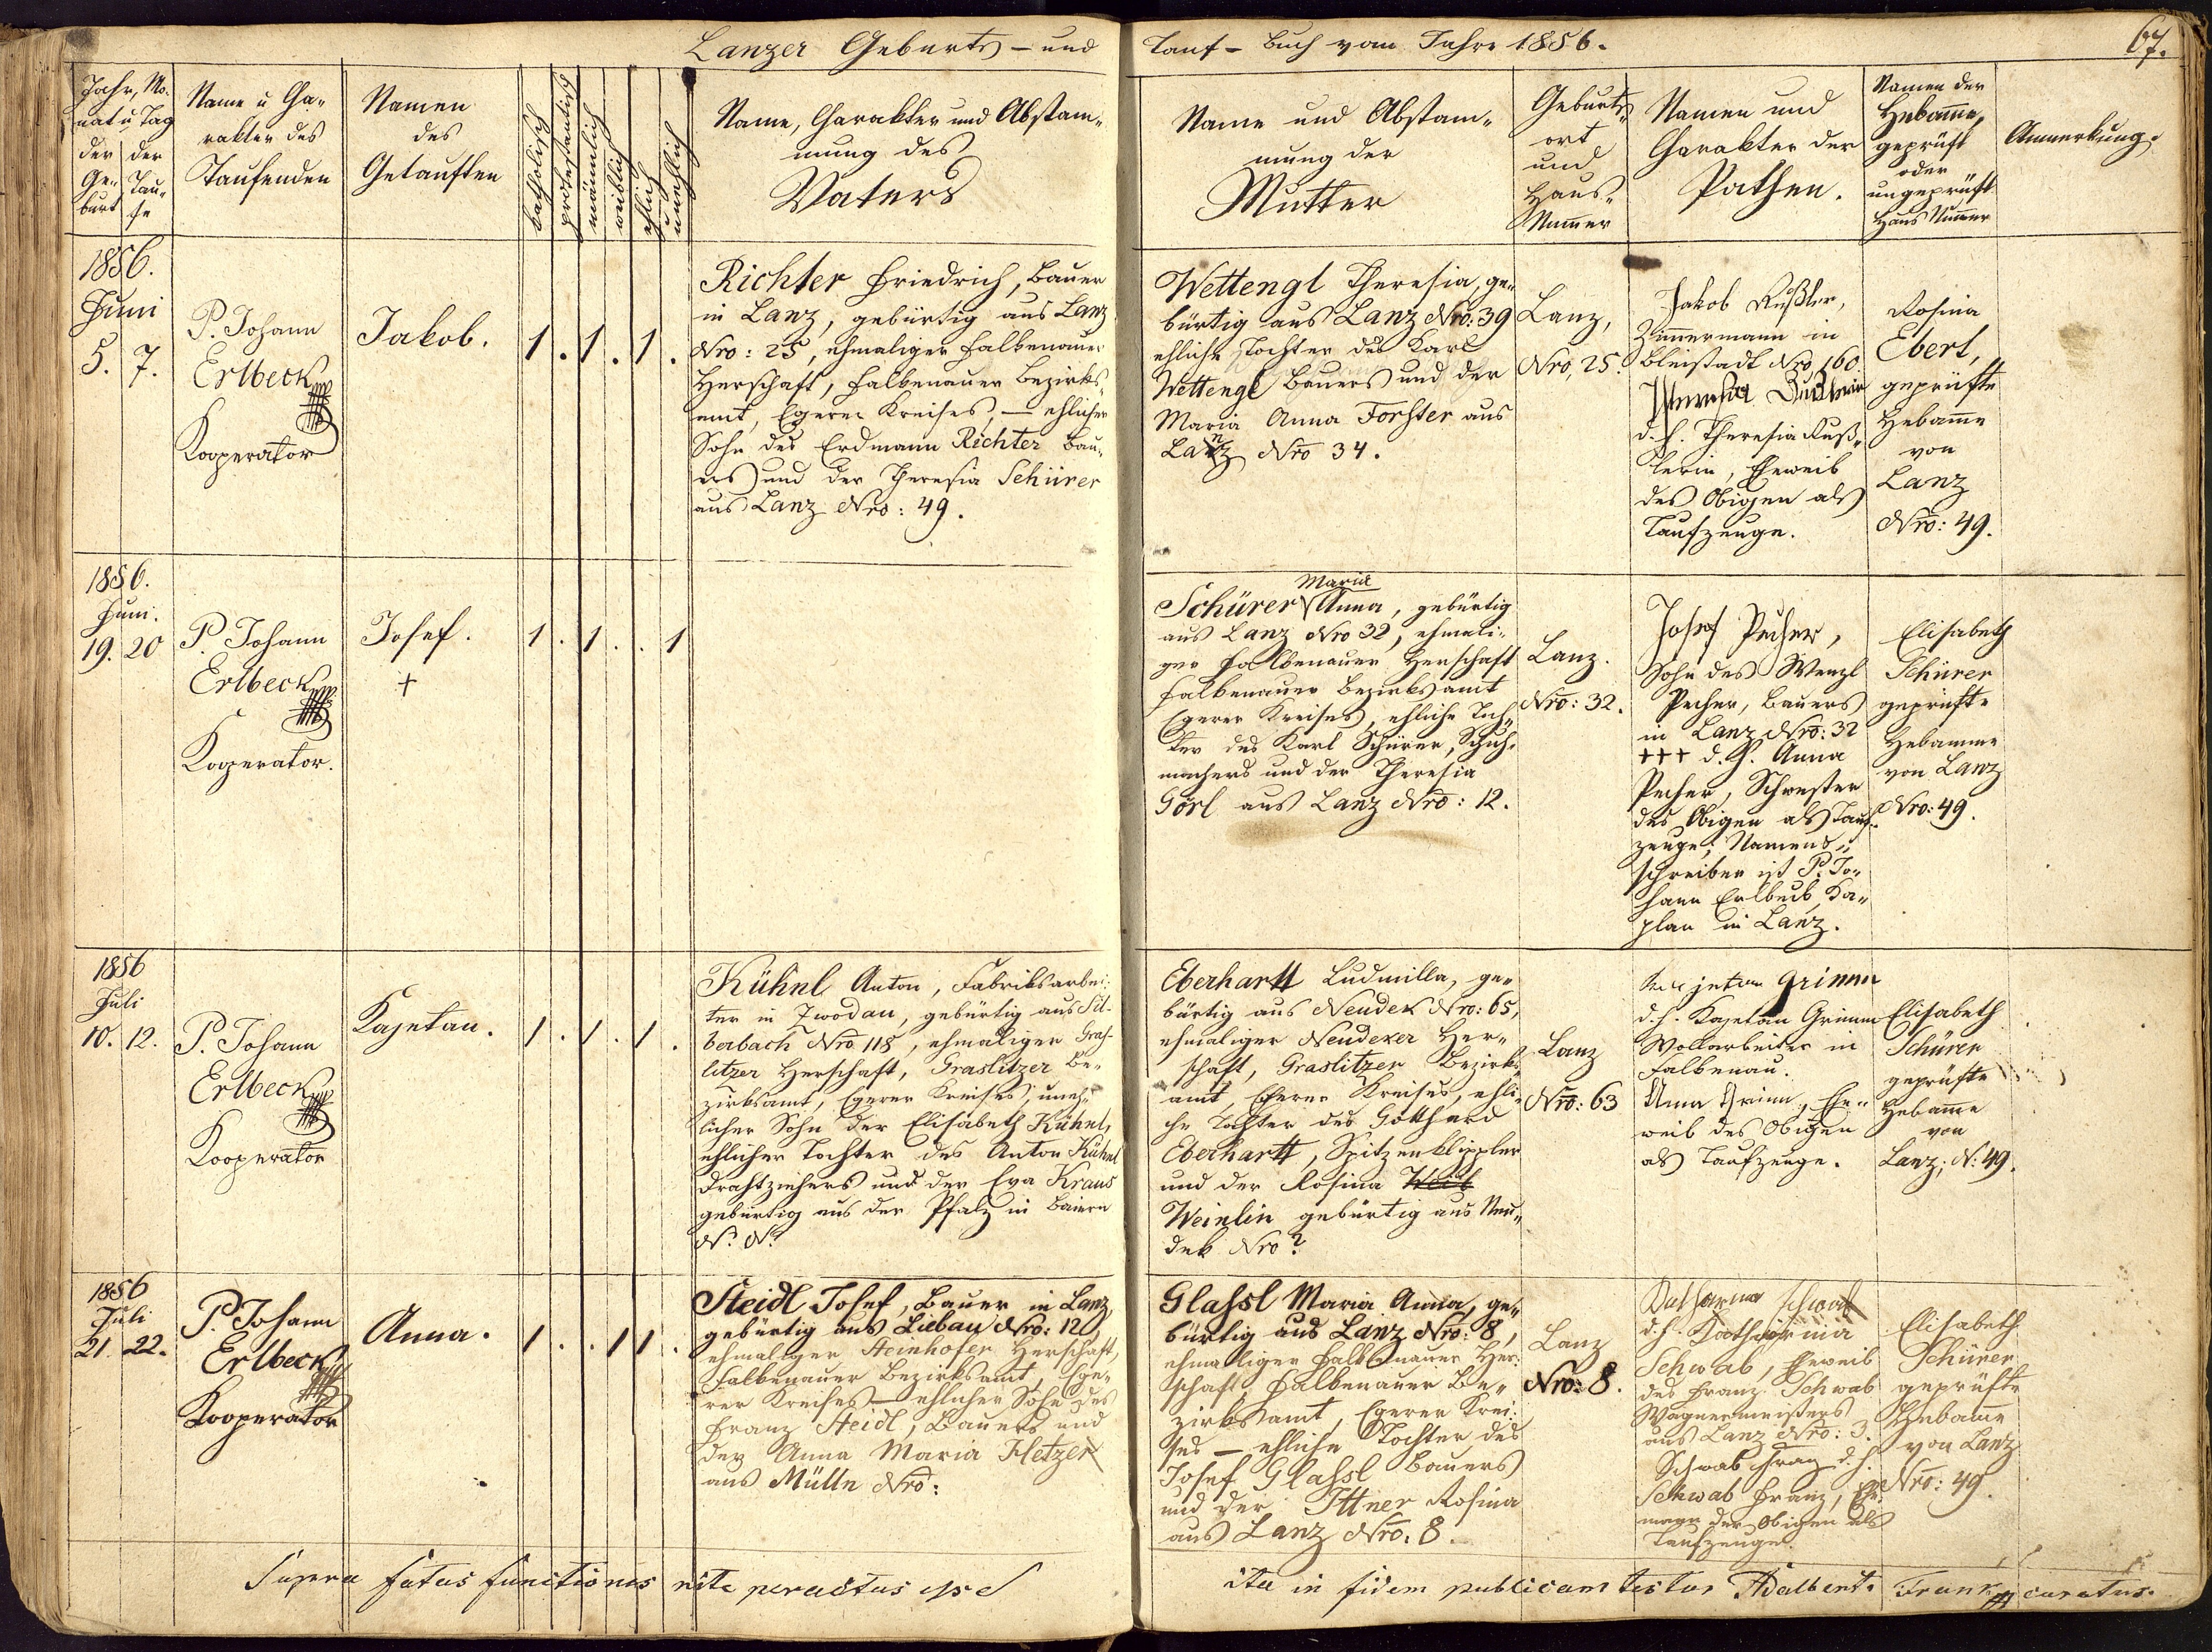 Lanzer Geburts- und
Tauf-Buch vom Jahre 1856.
67.
Jahr, Mo-
nat u Tag
der
Ge-
burt
der
Tau-
fe
Name u Cha-
rakter des
Taufenden
Namen
des
Getauften
katholisch
protestantisch
männlich
weiblich
ehlich
unehlich
Name, Charakter und Abstam-
mung des
Vaters
Name und Abstam-
mung der
Mutter
Geburts-
ort
und
Haus-
Num̄er
Namen und
Charakter der
Pathen.
Namen der
Hebam̄e,
geprüft
oder
ungeprüft
Haus Num̄er
Anmerkung.
1856.
Juni
5. 7.
P. Johann
Erlbeck
Kooperator
Jakob.
1 . 1 . 1 .
Richter Friedrich, Bauer
in Lanz, gebürtig aus Lanz
Nro: 25, ehmaliger Falkenauer
Herschaft, Falkenauer Bezirks-
amt, Egerer Kreises, — ehlicher
Sohn des Erdmann Richter Bau-
ers und der Theresia Schürer
aus Lanz Nro: 49.
Wettengl Theresia, ge-
bürtig aus Lanz Nro: 39
ehliche Tochter des Karl
Wettengl Bauers und der
Maria Anna Forster aus
Lanz Nro 34.
Lanz,
Nro, 25.
Jakob Rußler,
Zim̄ermann in
Bleistadt Nro, 160.
Theresia
d. h. Theresia Ruß-
lerin, Eheweib
des Obigen als
Taufzeuge.
Rosina
Ebert,
geprüfte
Hebam̄e
von
Lanz
Nro: 49.
1856.
Juni.
19. 20
P. Johann
Erlbeck
Kooperator.
Josef.
+
1 . 1 . . 1
Maria
Schürer Anna, gebürtig
aus Lanz Nro 32, ehmali-
ger Falkenauer Herschaft
Falkenauer Bezirksamt
Egerer Kreises, ehliche Toch-
ter des Karl Schürer, Schuh-
machers und der Theresia
Görl aus Lanz Nro: 12.
Lanz.
Nro: 32.
Josef Pecher,
Sohn des Wenzl
Pecher, Bauers
in Lanz Nro: 32
+++ d. h. Anna
Pecher, Schwester
des Obigen als Tauf-
zeuge; Namens-
schreiber ist P. Jo-
hann Erlbeck, Ka-
plan in Lanz.
Elisabeth
Schürer
geprüfte
Hebamme
von Lanz
Nro: 49.
1856
Juli
10. 12.
P. Johann
Erlbeck
Kooperator
Kajetan.
1 . 1 . 1 .
Kühnl Anton, Fabriksarbei-
ter in Zwodau, gebürtig aus Sil-
berbach Nro 118, ehmaliger Gras-
litzer Herschaft, Graslitzer Be-
zirksamt, Egerer Kreises, uneh-
licher Sohn der Elisabeth Kühnl,
ehlicher Tochter des Anton Kühnl
Drahtziehers und der Eva Kraus
gebürtig aus der Pfalz in Baiern
N. N.
Eberhartt Ludmilla, ge-
bürtig aus Neudek Nro: 65,
ehmaliger Neudeker Her-
schaft, Graslitzer Bezirks-
amt, Egerer Kreises, ehli-
che Tochter des Gotthard
Eberhartt, Spitzenklippler
und der Rosina Weib
Weinlin gebürtig aus Neu-
dek Nro?
Lanz
Nro: 63
Kajetan Grimm
d. h. Kajetan Grimm
Wollarbeiter in
Falkenau.
Anna Grimm, Ehe-
weib des Obigen
als Taufzeuge.
Elisabeth
Schürer
geprüfte
Hebam̄e
von
Lanz; N: 49.
1856
Juli
21. 22.
P. Johann
Erlbeck
Kooperator
Anna.
1 . . 1 1 .
Steidl Josef, Bauer in Lanz,
gebürtig aus Liebau Nro: 12,
ehmaliger Steinhofer Herschaft,
Falkenauer Bezirksamt, Ege-
rer Kreises — ehlicher Sohn des
Franz Steidl, Bauers und
der Anna Maria Hetzer
aus Mülln Nro:
Glassl Maria Anna, ge-
bürtig aus Lanz Nro: 8,
ehmaliger Falkenauer Her-
schaft, Falkenauer Be-
zirksamt, Egerer Krei-
ses — ehliche Tochter des
Josef Glassl Bauers
und der Ittner Rosina
aus Lanz Nro. 8.
Lanz
Nro: 8.
Katharina Schwab
d. h. Katharina
Schwab, Eheweib
des Franz Schwab
Wagnermeisters
aus Lanz Nro: 3.
Schwab Franz d. h.
Schwab Franz, Ehe-
mann der Obigen als
Taufzeuge.
Elisabeth
Schürer
geprüfte
Hebam̄e
von Lanz
Nro: 49.
Supra fatas functiones rite peractas esse
ita in fidem publicam testor Adalbert. Frank curatus.